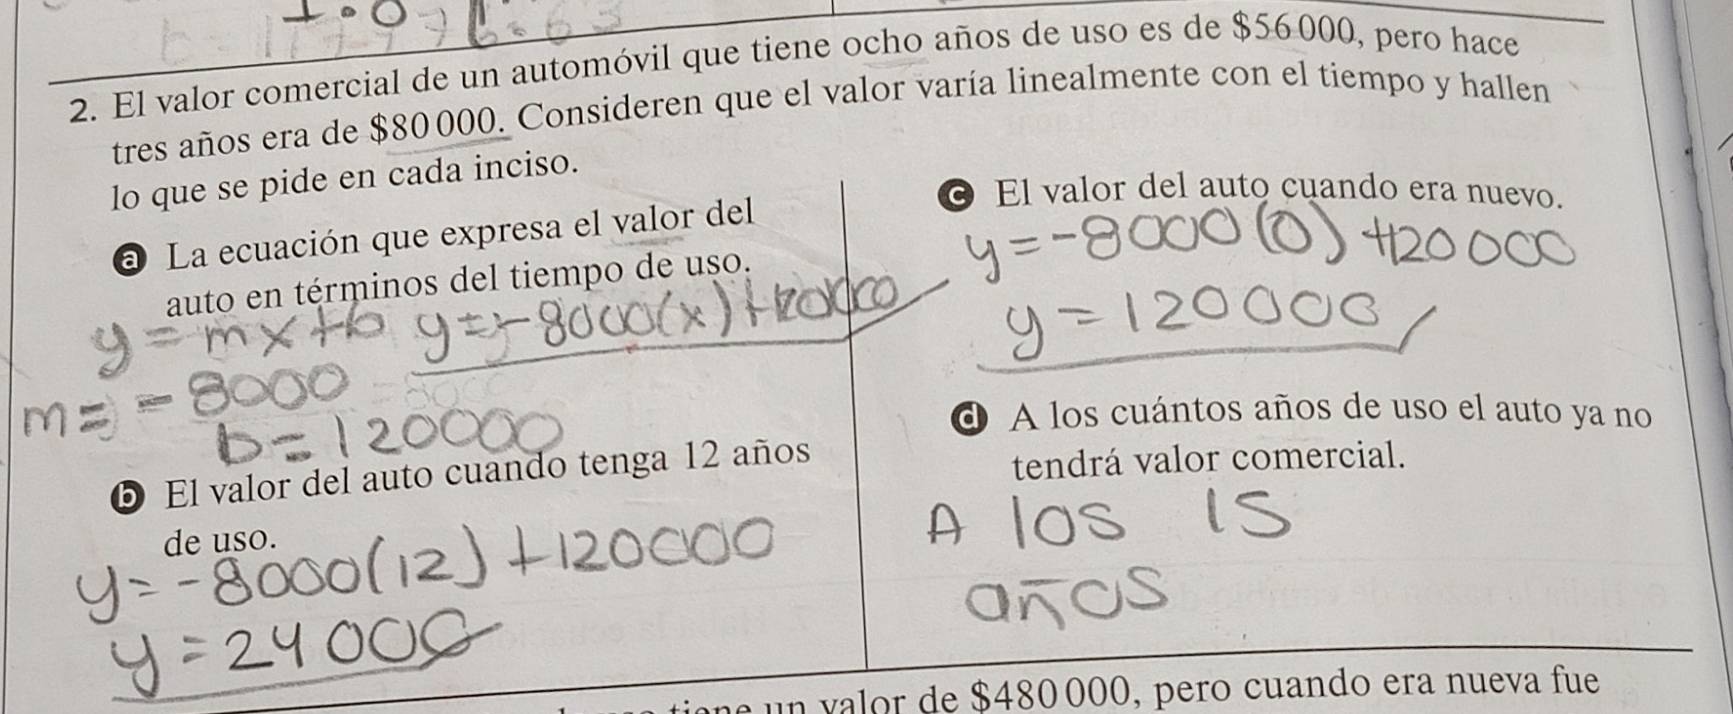 2. El valor comercial de un automóvil que tiene ocho años de uso es de $56 000, pero hace
tres años era de $80 000. Consideren que el valor varía linealmente con el tiempo y hallen
lo que se pide en cada inciso.
a La ecuación que expresa el valor del
auto en términos del tiempo de uso.
y = mx + b y = -8000(x) + 120000
m = -8000
b = 120000
b El valor del auto cuando tenga 12 años
de uso.
y = -8000(12) + 120000
y = 24000
c El valor del auto cuando era nuevo.
y = -8000(0) + 120000
y = 120000
d A los cuántos años de uso el auto ya no
tendrá valor comercial.
A los 15
años
tiene un valor de $480 000, pero cuando era nueva fue